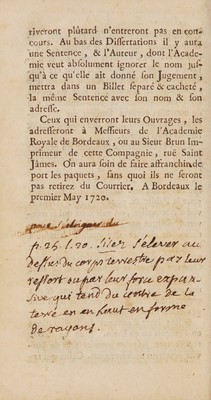 riveront plûtard n'entreront pas en con-
cours. Au bas des Dissertations il y aura
une Sentence, & l'Auteur, dont l'Acade-
mie veut absolument ignorer le nom jus-
qu'à ce qu'elle ait donné son Jugement,
mettra dans un Billet separé & cacheté,
la même Sentence avec son nom & son
adresse.
Ceux qui enverront leurs Ouvrages, les
adresseront à Messieurs de l'Academie
Royale de Bordeaux, ou au Sieur Brun Im-
primeur de cette Compagnie, ruë Saint
Jâmes. On aura soin de faire affranchir de
port les paquets, sans quoi ils ne seront
pas retirez du Courrier. A Bordeaux le
premier May 1720.
pour s'éloigner du
p. 25. l. 20. lisez s'élever au
dessus du corps terrestre par leur
ressort ou par leur force expan-
sive qui tend du centre de la
terre en en haut en forme
de rayons.